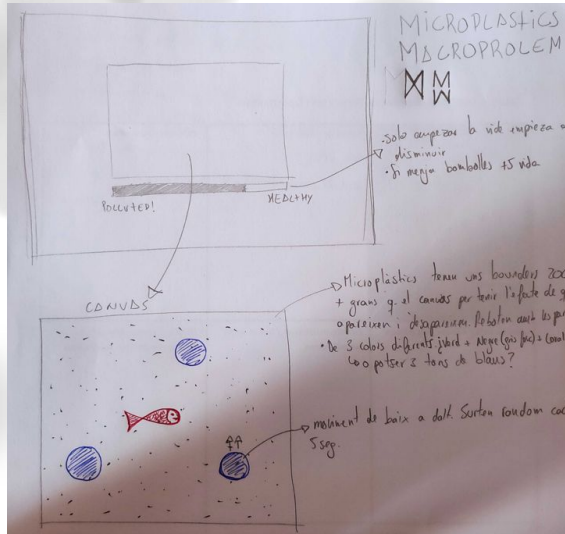 MICROPLASTICS
MACROPROLEM
M
W
· Solo empezar la vida empieza a
disminuir
· Si menja bombolles +5 vida
POLLUTED!
HEALTHY
CANVAS
Microplàstics tenen uns bounders 200
+ grans q el canvas per tenir l'efecte de q
apareixen i desapareixen. Reboten amb les par
· De 3 colors diferents, Verd + Negre (gris fosc) +
o potser 3 tons de blaus?
moviment de baix a dalt. Surten random cad
5 seg.